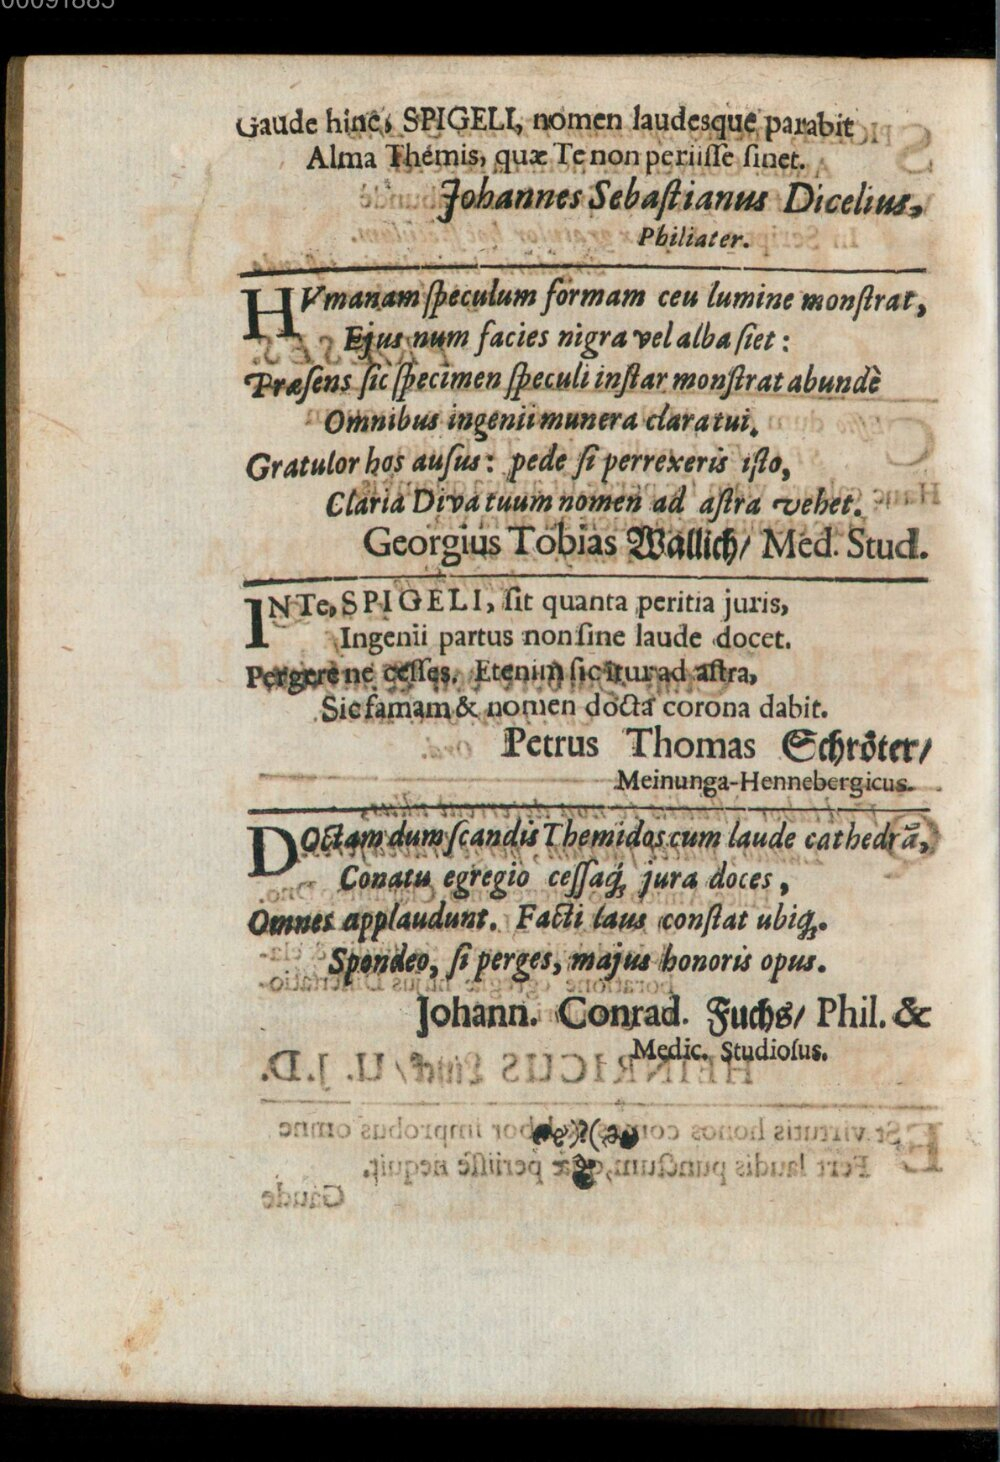 Gaude hinc, SPIGELI, nomen laudesque parabit
Alma Themis, quæ Te non periiſſe ſinet.
Johannes Sebaſtianus Dicelius,
Philiater.
HUmanam ſpeculum formam ceu lumine monſtrat,
Ejus num facies nigra vel alba ſiet:
Præſens ſic ſpecimen ſpeculi inſtar monſtrat abundè
Omnibus ingenii munera clara tui.
Gratulor hos auſus: pede ſi perrexeris iſto,
Claria Diva tuum nomen ad aſtra vehet.
Georgius Tobias Wallich/ Med. Stud.
IN Te, SPIGELI, ſit quanta peritia juris,
Ingenii partus non ſine laude docet.
Pergere ne ceſſes. Etenim ſic itur ad aſtra,
Sic famam & nomen docta corona dabit.
Petrus Thomas Schröter/
Meinunga-Hennebergicus.
DOctam dum ſcandis Themidos cum laude cathedrã,
Conatu egregio ceſſaq́; jura doces,
Omnes applaudunt. Facti laus conſtat ubiq́;.
Spondeo, ſi perges, majus honoris opus.
Johann. Conrad. Fuchs/ Phil. &
Medic. Studioſus.